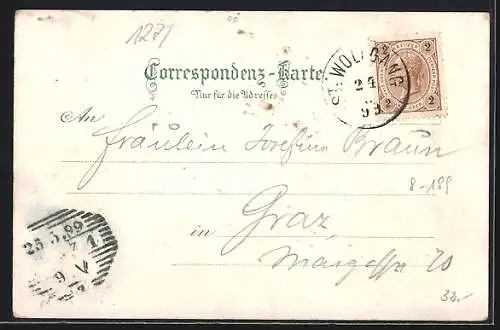 1279
Correspondenz-Karte
Nur für die Adresse
ST. WOLFGANG
24
99
2 2
2 2
An
Fräulein Josefine Braun
8-189
in Graz,
25 5.99
9 V
20
32.-